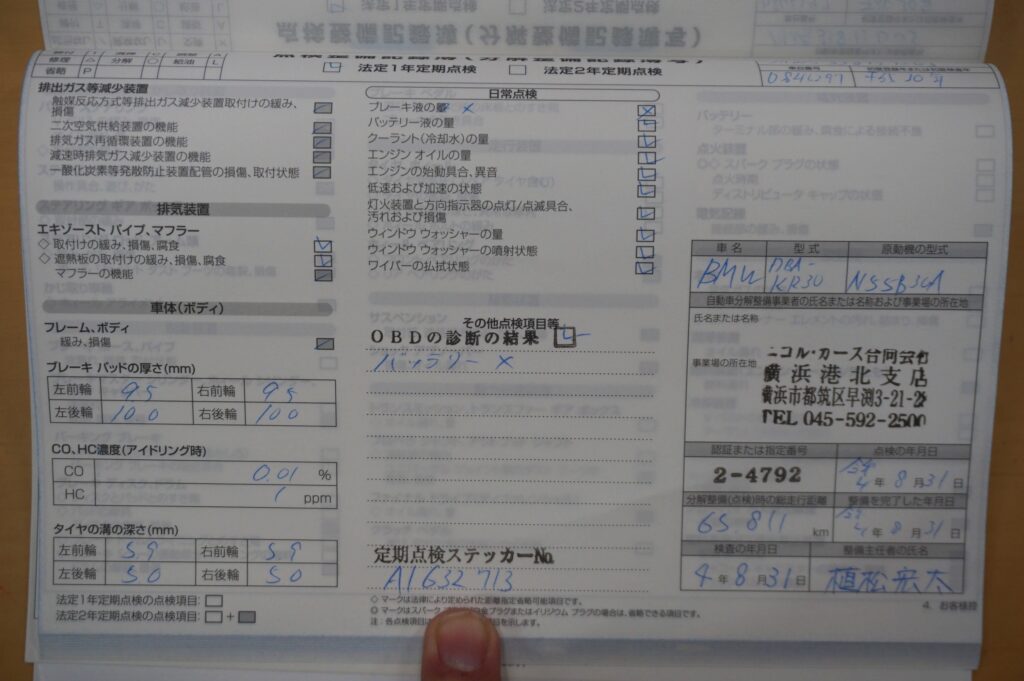 修理 △ 分解 ○ 給油 L
省略 P
法定1年定期点検 法定2年定期点検
084029
排出ガス等減少装置
触媒反応方式等排出ガス減少装置取付けの緩み、
損傷
二次空気供給装置の機能
排気ガス再循環装置の機能
減速時排気ガス減少装置の機能
一酸化炭素等発散防止装置配管の損傷、取付状態
排気装置
エキゾースト パイプ、マフラー
◇ 取付けの緩み、損傷、腐食
◇ 遮熱板の取付けの緩み、損傷、腐食
マフラーの機能
車体(ボディ)
フレーム、ボディ
緩み、損傷
ブレーキ パッドの厚さ(mm)
左前輪 9.5 右前輪 9.5
左後輪 10.0 右後輪 10.0
CO、HC濃度(アイドリング時)
CO 0.01 %
HC 1 ppm
タイヤの溝の深さ(mm)
左前輪 5.9 右前輪 5.9
左後輪 5.0 右後輪 5.0
法定1年定期点検の点検項目:
法定2年定期点検の点検項目: +
日常点検
ブレーキ液の量 ×
バッテリー液の量
クーラント(冷却水)の量
エンジン オイルの量
エンジンの始動具合、異音
低速および加速の状態
灯火装置と方向指示器の点灯/点滅具合、
汚れおよび損傷
ウィンドウ ウォッシャーの量
ウィンドウ ウォッシャーの噴射状態
ワイパーの払拭状態
その他点検項目等
OBDの診断の結果
バッテリー ×
定期点検ステッカーNo.
A1632713
◇ マークは法律により定められた距離指定省略可能項目です。
車名 型式 原動機の型式
BMW DBA-KR30 N55B30A
自動車分解整備事業者の氏名または名称および事業場の所在地
氏名または名称
事業場の所在地
ニコル・カース合同会社
横浜港北支店
横浜市都筑区早渕3-21-28
TEL 045-592-2500
認証または指定番号 点検の年月日
2-4792 4年 8月 31日
分解整備(点検)時の総走行距離 整備を完了した年月日
65811 km 4年 8月 31日
検査の年月日 整備主任者の氏名
4年 8月 31日 植松宏太
4. お客様控